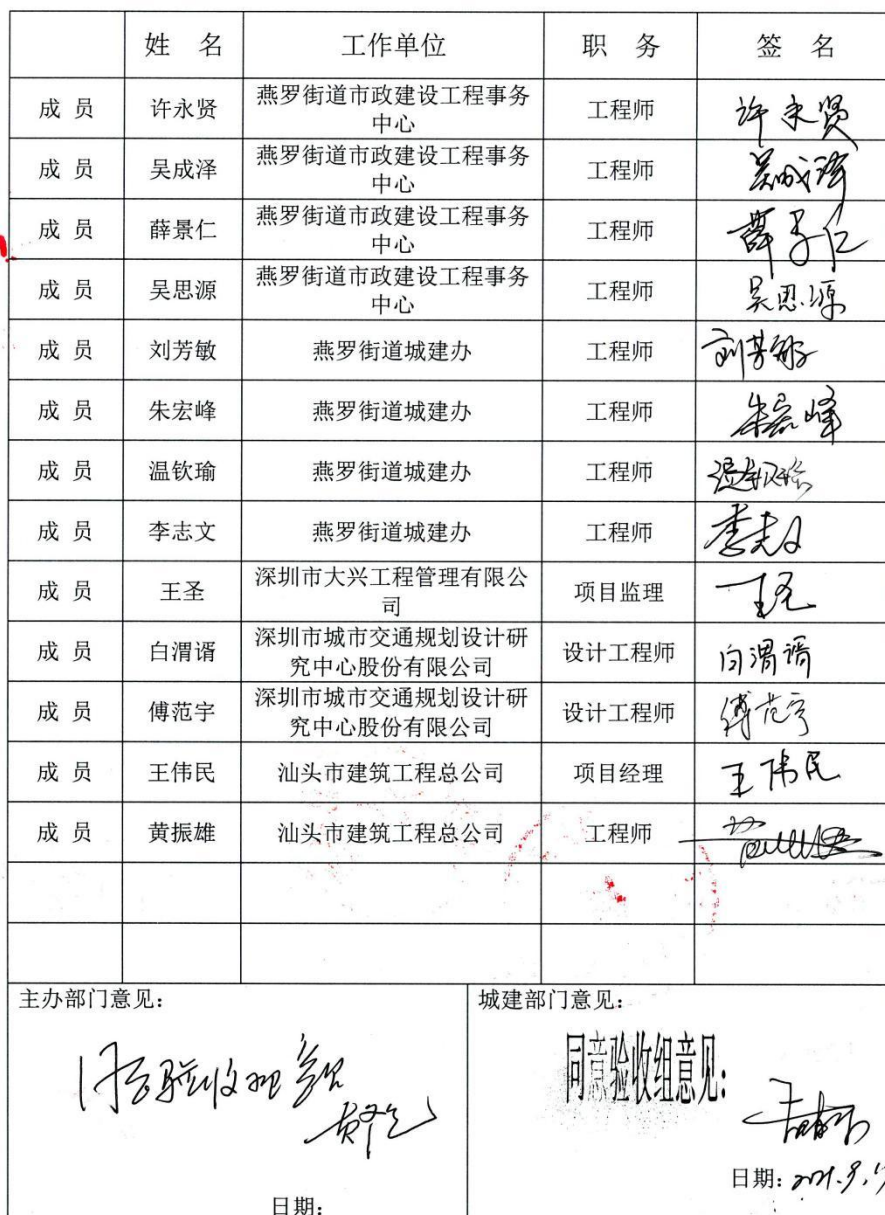 姓 名 工作单位 职 务 签 名
成 员 许永贤 燕罗街道市政建设工程事务中心 工程师 许永贤
成 员 吴成泽 燕罗街道市政建设工程事务中心 工程师 吴成泽
成 员 薛景仁 燕罗街道市政建设工程事务中心 工程师 薛景仁
成 员 吴思源 燕罗街道市政建设工程事务中心 工程师 吴思源
成 员 刘芳敏 燕罗街道城建办 工程师 刘芳敏
成 员 朱宏峰 燕罗街道城建办 工程师 朱宏峰
成 员 温钦瑜 燕罗街道城建办 工程师 温钦瑜
成 员 李志文 燕罗街道城建办 工程师 李志文
成 员 王圣 深圳市大兴工程管理有限公司 项目监理 王圣
成 员 白渭谞 深圳市城市交通规划设计研究中心股份有限公司 设计工程师 白渭谞
成 员 傅范宇 深圳市城市交通规划设计研究中心股份有限公司 设计工程师 傅范宇
成 员 王伟民 汕头市建筑工程总公司 项目经理 王伟民
成 员 黄振雄 汕头市建筑工程总公司 工程师
主办部门意见：
同意验收组意见
日期：
城建部门意见：
同意验收组意见：
日期：2021.9.